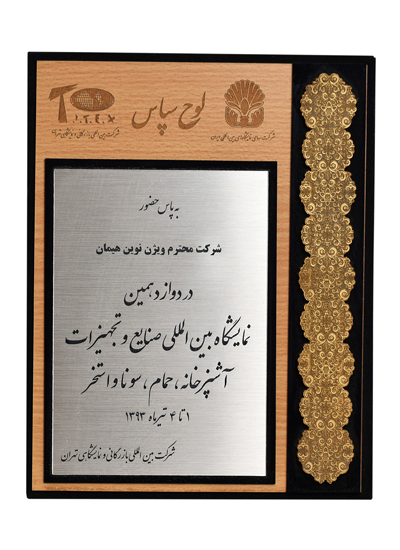 لوح سپاس
T.I.T.E.X
شرکت سهامی نمایشگاههای بین المللی ایران
شرکت بین المللی بازرگانی و نمایشگاهی تهران
به پاس حضور
شرکت محترم ویژن نوین هیمان
در دوازدهمین
نمایشگاه بین المللی صنایع و تجهیزات
آشپزخانه، حمام، سونا و استخر
۱ تا ۴ تیرماه ۱۳۹۳
شرکت بین المللی بازرگانی و نمایشگاهی تهران